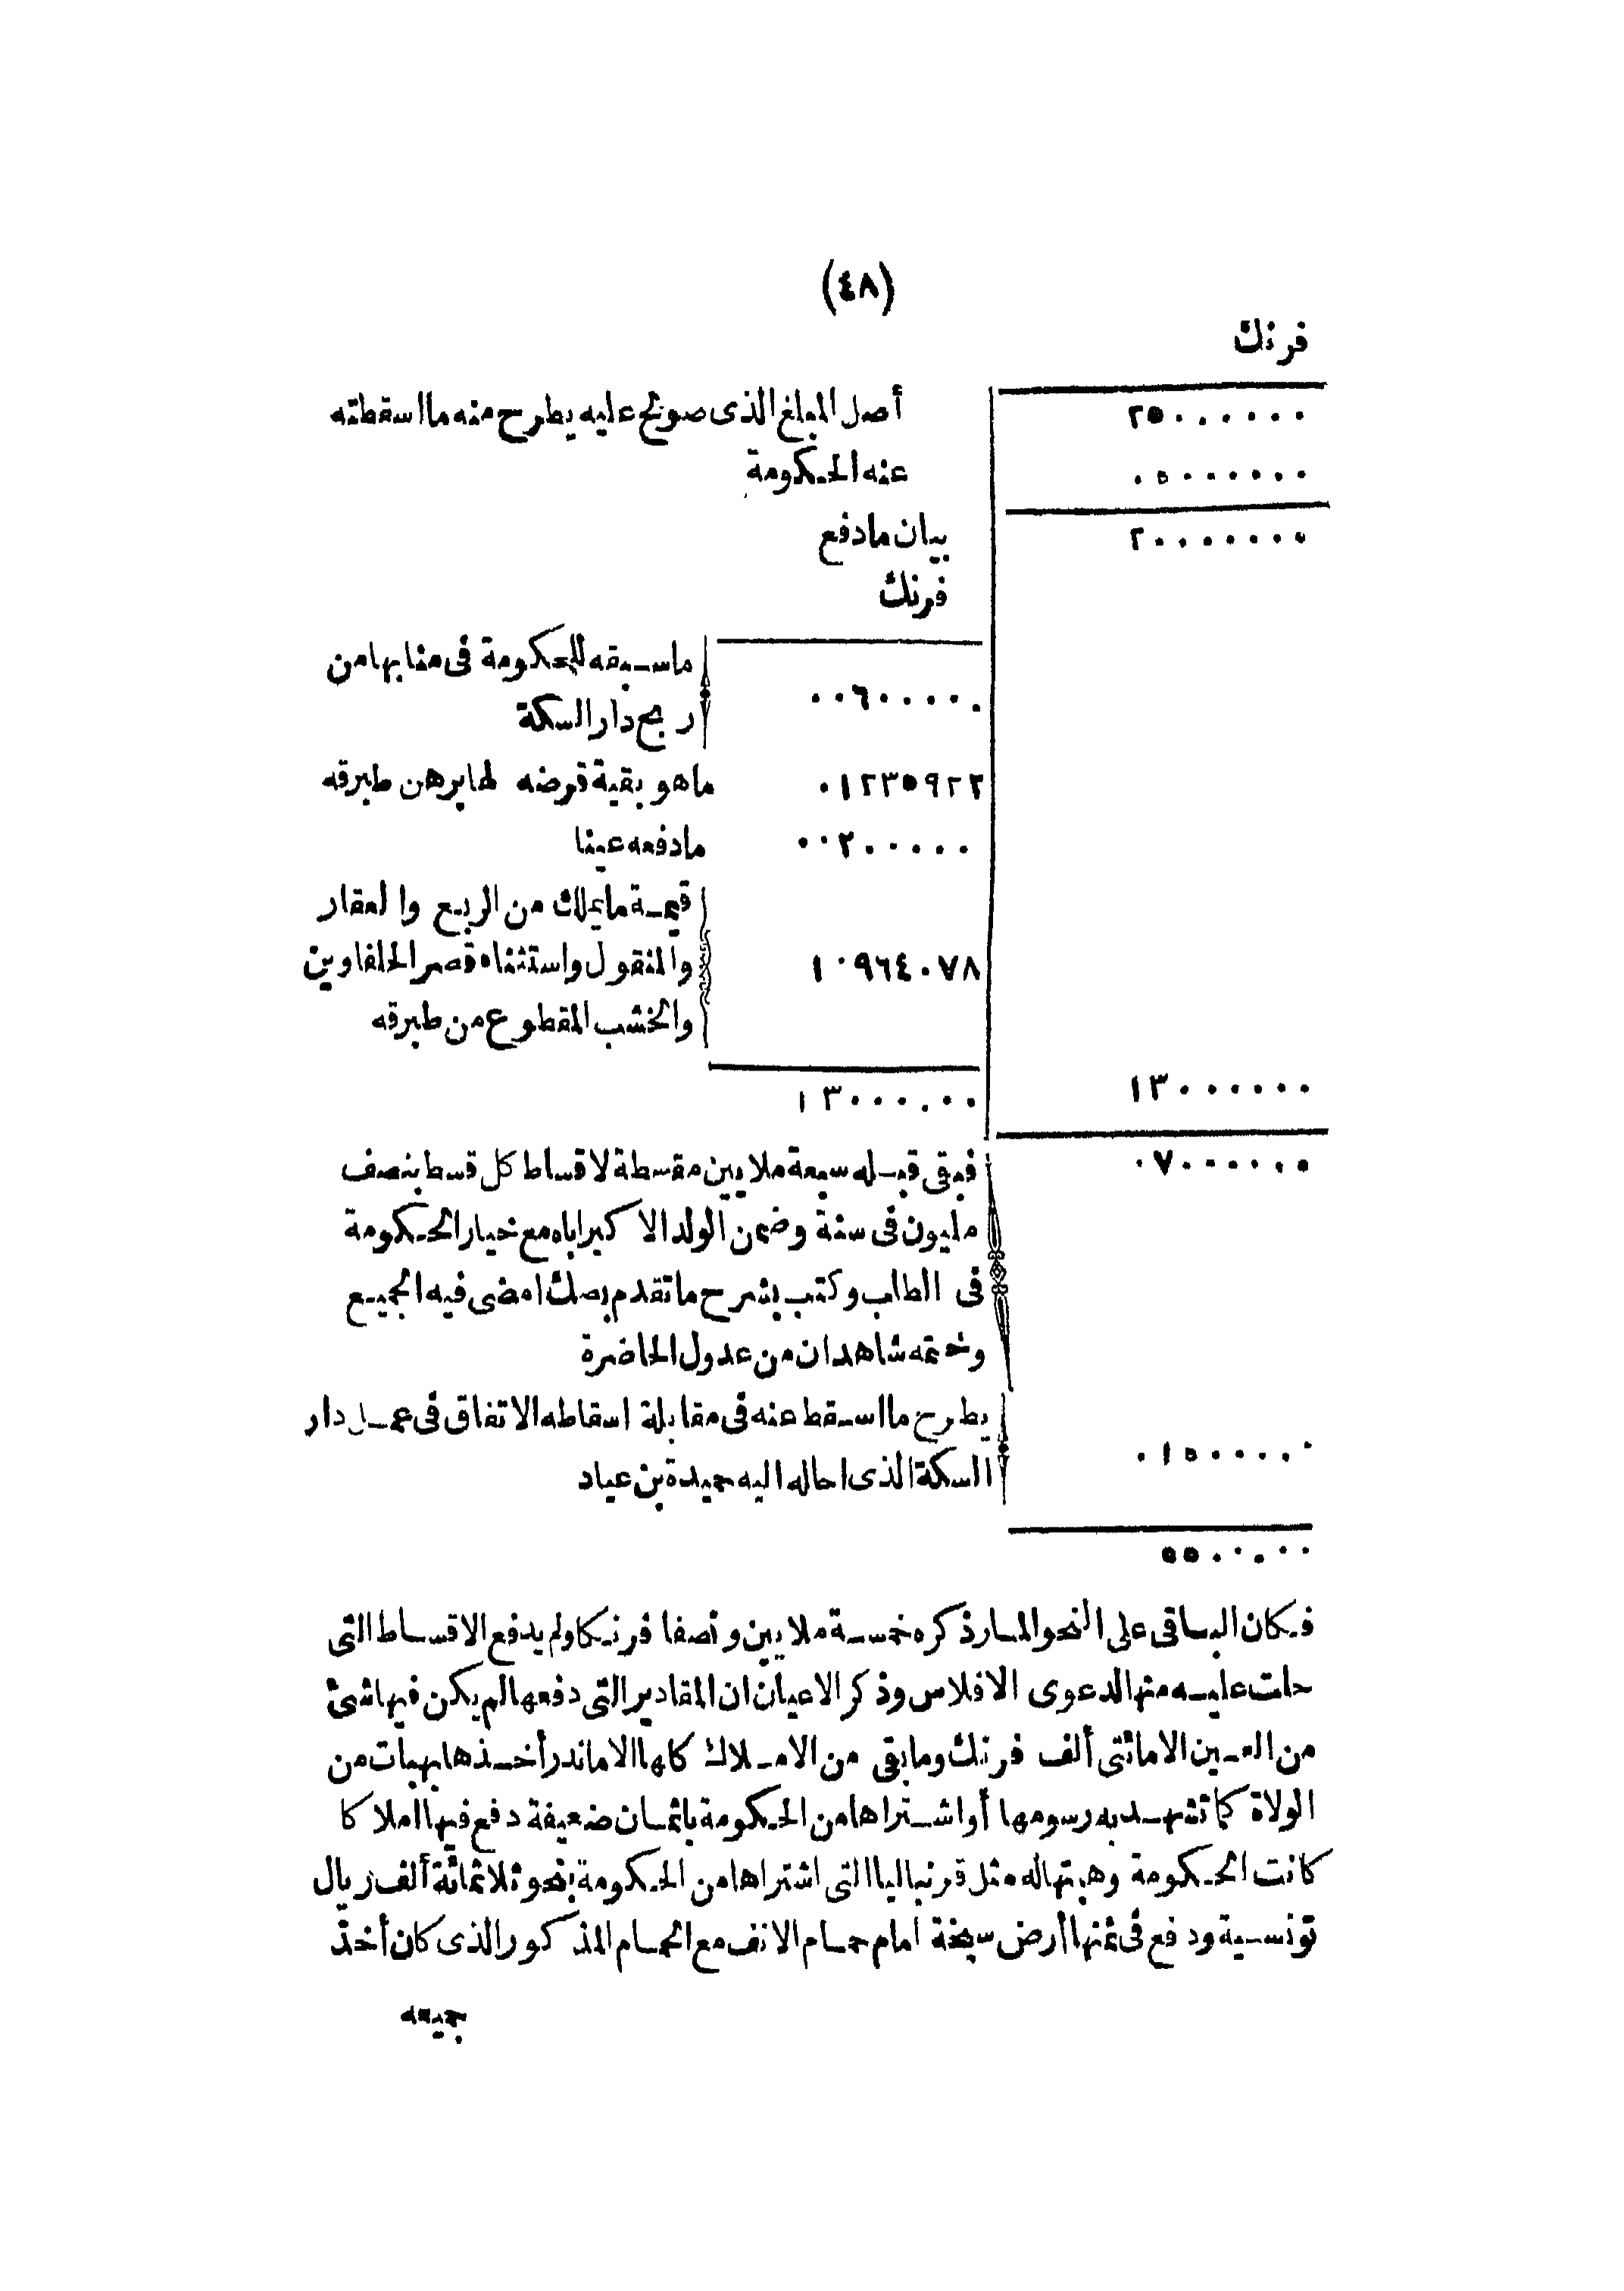 (٤٨)
فرنك
٢٥٠٠٠٠٠٠ أصل المبلغ الذى صولح عليه يطرح منه ما اسقطته
٠٥٠٠٠٠٠٠ عنه الحكومة
٢٠٠٠٠٠٠٠ بيان مادفع
فرنك
ماسبقه للحكومة فى منابها من
٠٠٦٠٠٠٠٠ ربح دار السكة
٠١٢٣٥٩٢٢ ماهو بقية قرضه لها برهن طبرقه
٠٠٢٠٠٠٠٠ مادفعه عينا
قيمة مايملك من الربع والعقار
١٠٩٦٤٠٧٨ والمنقول واستثناه قصر الحلفاوين
والخشب المقطوع من طبرقه
١٣٠٠٠٠٠٠ ١٣٠٠٠٠٠٠
٠٧٠٠٠٠٠٠ فبقى قبله سبعة ملايين مقسطة لاقساط كل قسط بنصف
مليون فى سنة وضمن الولد الاكبر اباه مع خيار الحكومة
فى الطلب وكتب بشرح ماتقدم بصك امضى فيه الجميع
وختمه شاهدان من عدول الحاضرة
يطرح ما اسقط عنه فى مقابلة اسقاطه الاتفاق فى عمل دار
٠١٥٠٠٠٠٠ السكة الذى احاله اليه حميدة بن عياد
٥٥٠٠٠٠٠
فكان الباقى على النحو المار ذكره خمسة ملايين ونصفا فرنكا ولم يدفع الاقساط التى
حلت عليه منها لدعوى الافلاس وذكر الاعيان ان المقادير التى دفعها لم يكن فيها شئ
من العين الا مائتى ألف فرنك ومابقى من الاملاك كلها الا ماندر أخذها بهبات من
الولاة كما تشهد به رسومها أو اشتراها من الحكومة باثمان ضعيفة دفع فيها املاكا
كانت الحكومة وهبتها له مثل قرنباليا التى اشتراها من الحكومة بنحو ثلاثمائة ألف ريال
تونسية ودفع فى ثمنها أرض سبخة امام حمام الانف مع الحمام المذكور الذى كان أخذ
جميعه